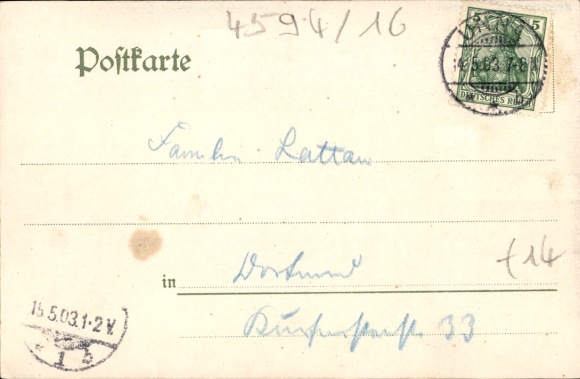 4594/16
Postkarte
5
14.5.03 7-8
DEUTSCHES REICH
b
Familie Lattau
in Dortmund
+14
33
15.5.03.1-2V.
1 b